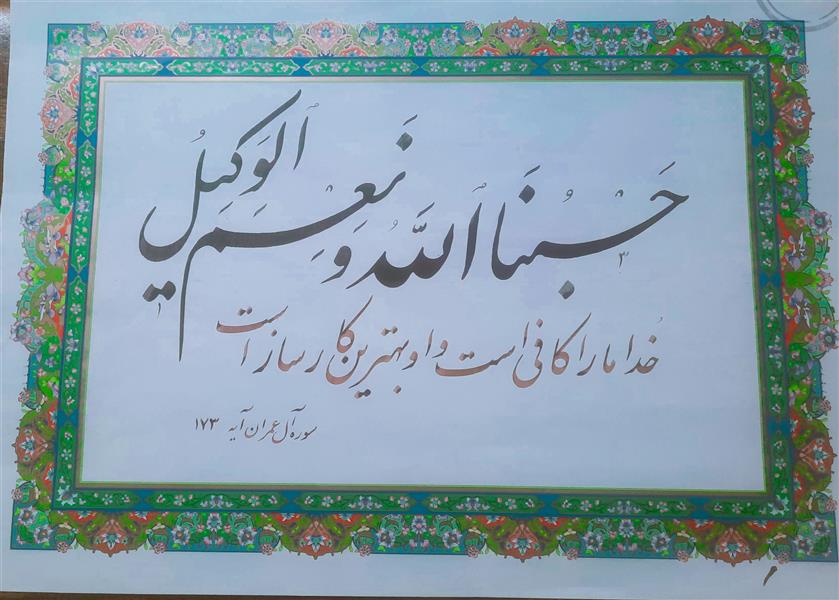 حَسْبُنَا ٱللَّهُ وَنِعْمَ ٱلْوَكِيلُ
خُدا ما را کافی است و او بهترین کارساز است
سوره آل عمران آیه ۱۷۳